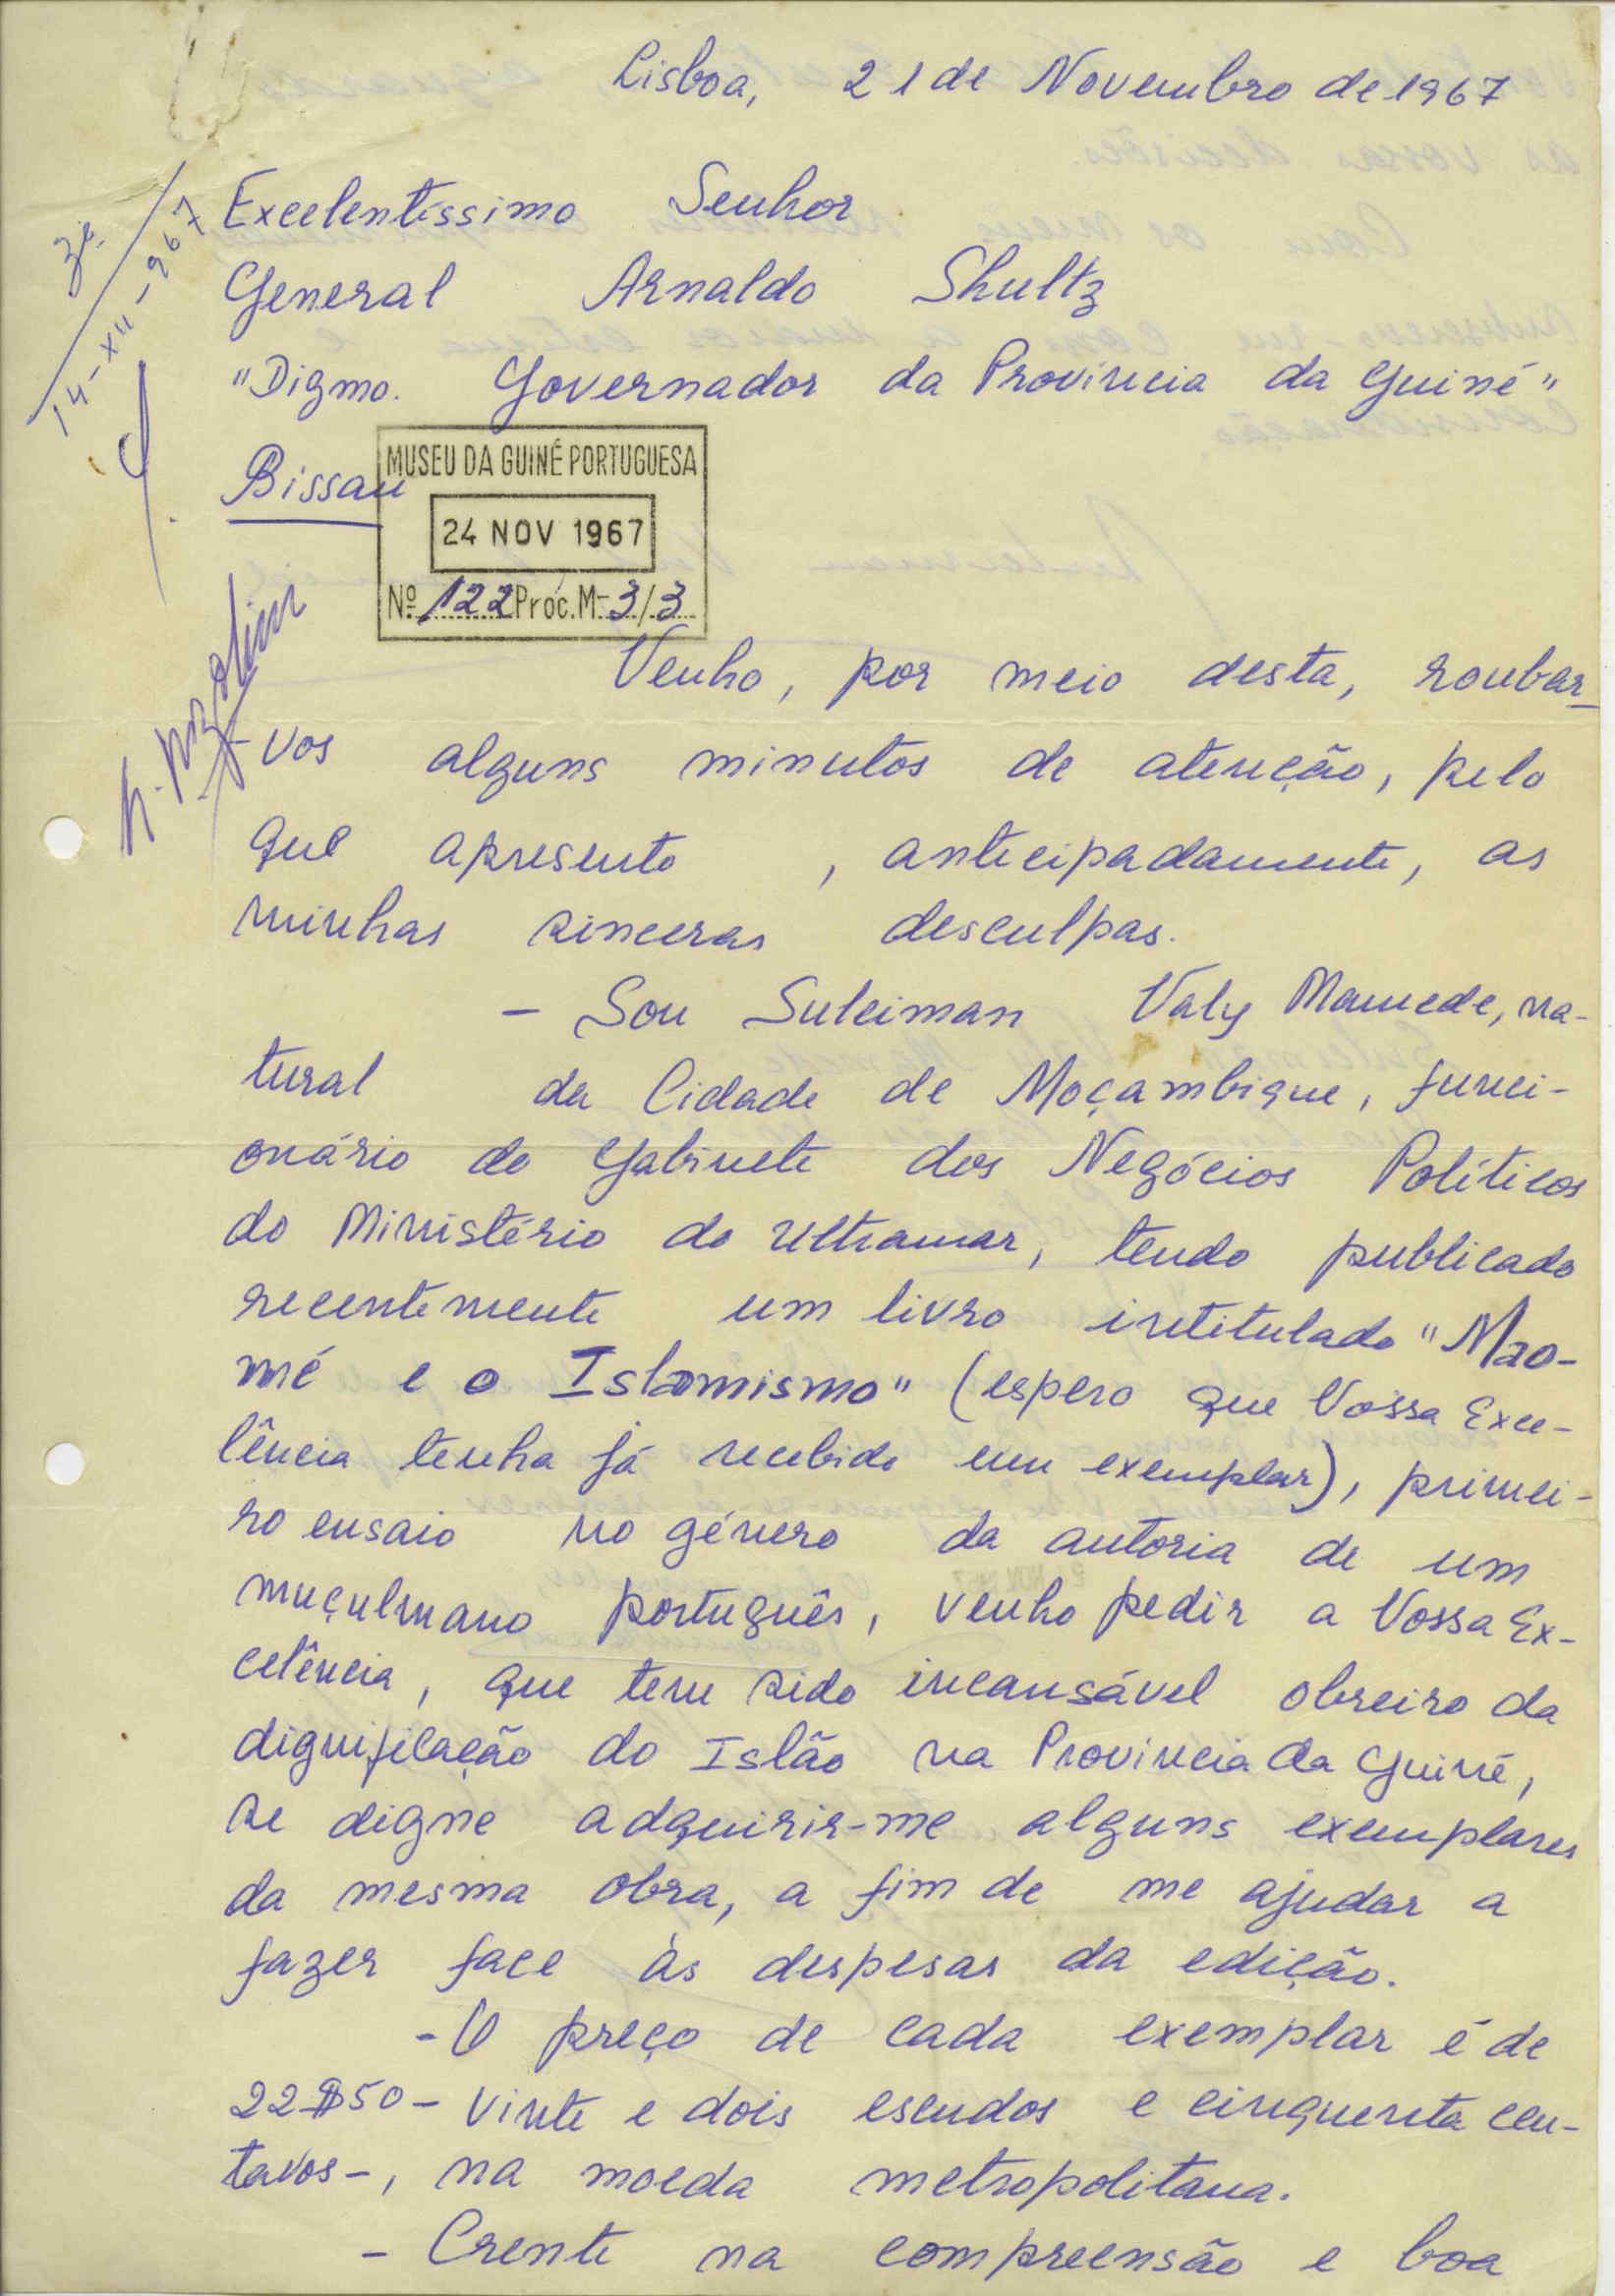 Lisboa, 21 de Novembro de 1967
Excelentíssimo Senhor
General Arnaldo Shultz
"Digmo. Governador da Província da Guiné"
Bissau
14-XII-967
MUSEU DA GUINÉ PORTUGUESA
24 NOV 1967
Nº 122 Proc. M-3/3
Venho, por meio desta, roubar-
-vos alguns minutos de atenção, pelo
que apresento , antecipadamente, as
minhas sinceras desculpas.
- Sou Suleiman Valy Mamede, na-
tural da Cidade de Moçambique, funci-
onário do Gabinete dos Negócios Políticos
do Ministério do Ultramar, tendo publicado
recentemente um livro intitulado "Mao-
mé e o Islamismo" (espero que Vossa Exce-
lência tenha já recebido um exemplar), primei-
ro ensaio no género da autoria de um
muçulmano português, venho pedir a Vossa Ex-
celência, que tem sido incansável obreiro da
dignificação do Islão na Província da Guiné,
se digne adquirir-me alguns exemplares
da mesma obra, a fim de me ajudar a
fazer face às despesas da edição.
- O preço de cada exemplar é de
22$50 - vinte e dois escudos e cinquenta cen-
tavos -, na moeda metropolitana.
- Crente na compreensão e boa